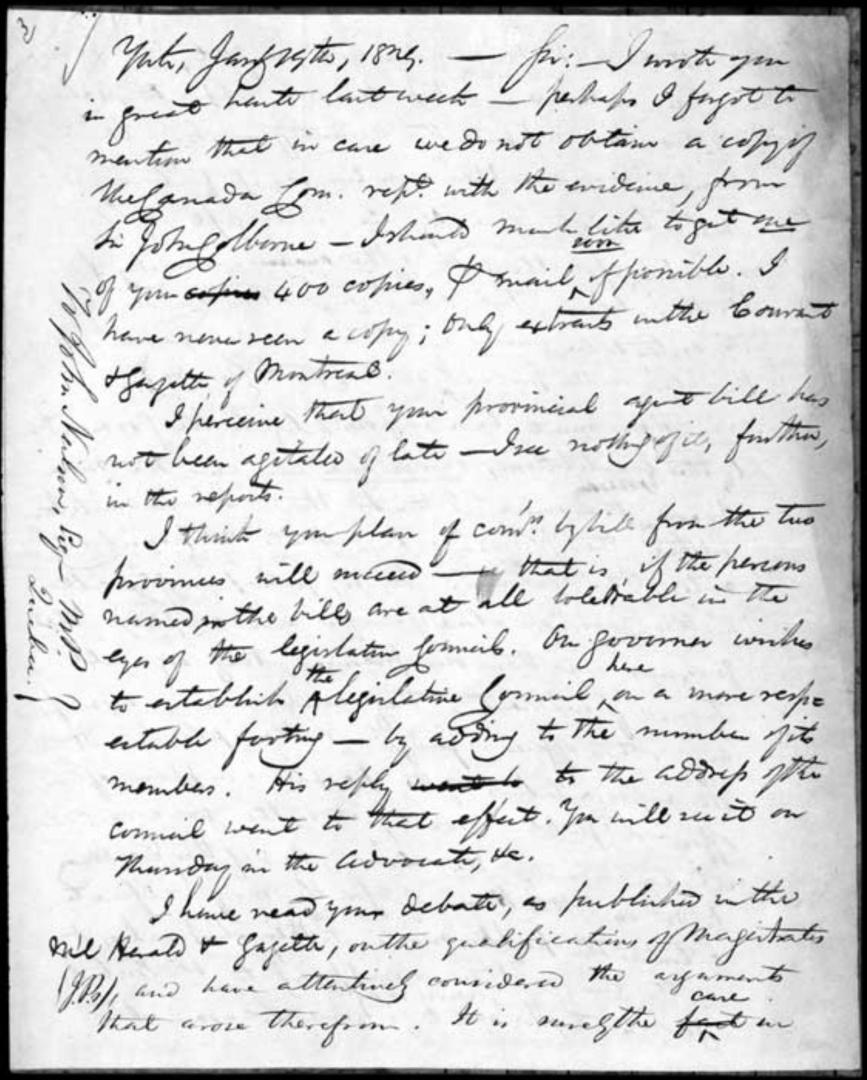 3
York, Jany 19th, 1829. — Sir: — I wrote you
in great haste last week — perhaps I forgot to
mention that in case we do not obtain a copy of
the Canada Com. rept. with the evidence, from
Sir John Colborne — I should much like to get one
of your copies 400 copies, & mail soon if possible. I
have never seen a copy; only extracts in the Courant
& Gazette of Montreal.
I perceive that your provincial agent bill has
not been agitated of late — I see nothing of it, further,
in the reports.
I think your plan of comrs. by bill from the two
provinces will succeed — that is, if the persons
named in the bills are at all tolerable in the
eyes of the legislative Councils. Our governor wishes
to establish the legislative Council, here on a more resp=
ectable footing — by adding to the number of its
members. His reply went to to the address of the
council went to that effect. You will see it on
Thursday in the Advocate, &c.
I have read your debate, as published in the
Mil Herald & Gazette, on the qualifications of Magistrates
(J.Ps), and have attentively considered the arguments
that arose therefrom. It is surely the fact case in
To John Neilson, Esqr M.P.
Quebec